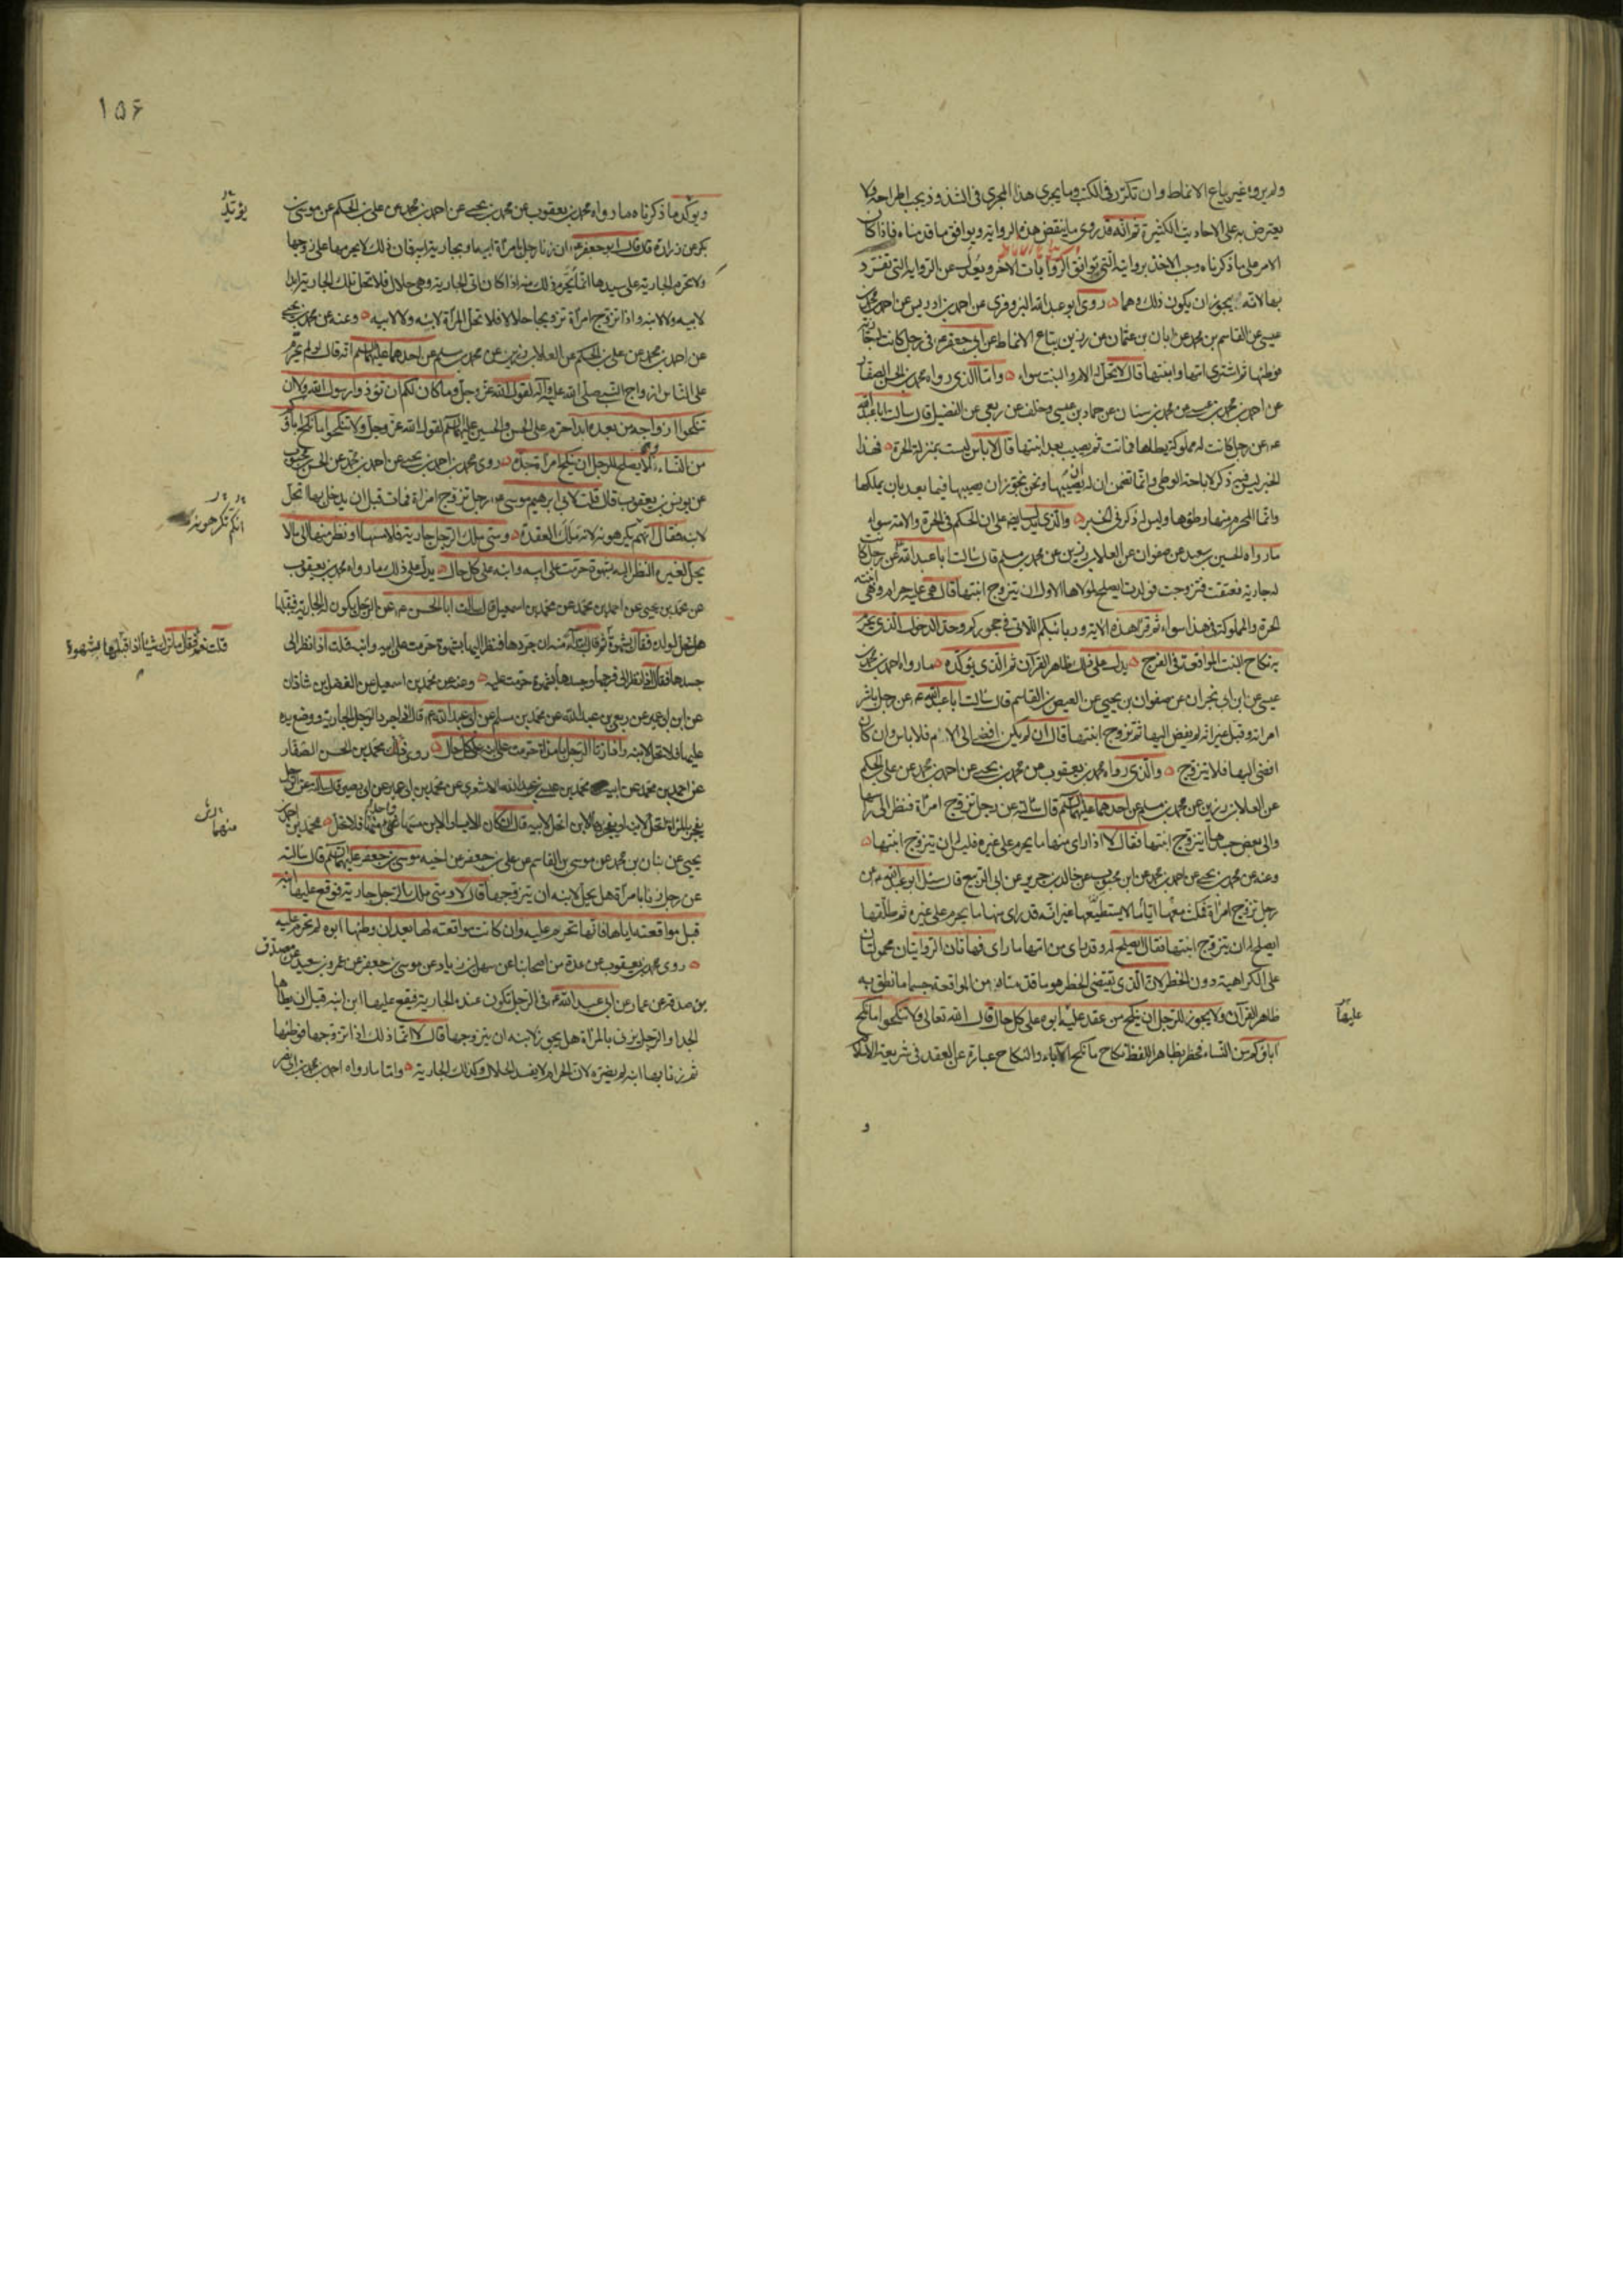 ولم يروه غير بياع الانماط وان تكرر في الكتب وما يجري هذا المجري في الشذوذ يجب اطراحه ولا
يعترض به على الاحاديث الكثيرة ثم انه قد روى ما ينقض هذه الرواية ويوافق ما قدمناه فاذا كان
الامر على ما ذكرناه وجب الاخذ بروايته التي توافق الروايات الاخر ويعدل عن الرواية التي تفرد
بها لانه يجوز ان يكون ذلك وهما روى ابو عبد الله البزوفري عن احمد بن ادريس عن احمد بن محمد بن
عيسى عن القاسم بن محمد عن ابان بن عثمان عن رزين بياع الانماط عن ابي جعفر ع في رجل كانت له جارية
فوطئها ثم اشترى امها وابنتها قال لا تحل له الام والبنت سواء واما الذي رواه محمد بن الحسن الصفار
عن احمد بن محمد بن عيسى عن محمد بن سنان عن حماد بن عيسى وخلف عن ربعي عن الفضيل قال سالت ابا عبد الله
ع عن رجل كانت له مملوكة يطاها فماتت ثم يصيب بعد ابنتها قال لا باس ليست بمنزلة الحرة فهذا
الخبر ليس فيه ذكر لاباحة الوطي وانما تضمن ان له ان يصيبها ونحن نجوز ان يصيبها فيما بعد بان يملكها
وانما المحرم منها وطؤها وليس له ذكر في الخبر والذي يدل ايضا على ان الحكم في الحرة والامة سواء
ما رواه الحسين بن سعيد عن صفوان عن العلاء بن رزين عن محمد بن مسلم قال سالت ابا عبد الله ع عن رجل كانت
له جارية فعتقت فتزوجت فولدت ايصلح لمولاها الاول ان يتزوج ابنتها قال هي عليه حرام وهي ابنته
الحرة والمملوكة في هذا سواء ثم قرا هذه الاية وربائبكم اللاتي في حجوركم وحد الدخول الذي يحرم
به نكاح البنت المواقعة في الفرج يدل على ذلك ظاهر القرآن ثم الذي يؤكده ما رواه احمد بن محمد بن
عيسى عن ابن ابي نجران عن صفوان بن يحيى عن العيص بن القاسم قال سالت ابا عبد الله ع عن رجل باشر
امراته وقبل غير انه لم يفض اليها ثم تزوج ابنتها قال ان لم يكن افضى الى الام فلا باس وان كان
افضى اليها فلا يتزوج والذي رواه محمد بن يعقوب عن محمد بن يحيى عن احمد بن محمد عن علي بن الحكم
عن العلاء بن رزين عن محمد بن مسلم عن احدهما عليهما السلم قال سالته عن رجل تزوج امراة فنظر الى راسها
والى بعض جسدها ايتزوج ابنتها فقال لا اذا راى منها ما يحرم على غيره فليس له ان يتزوج ابنتها
وعنه عن محمد بن يحيى عن احمد بن محمد عن ابن محبوب عن خالد بن جرير عن ابي الربيع قال سئل ابو عبد الله ع عن
رجل تزوج امراة فمكث معها اياما لا يستطيعها غير انه قد راى منها ما يحرم على غيره ثم طلقها
ايصلح له ان يتزوج ابنتها فقال ايصلح له وقد راى من امها ما راى فهاتان الروايتان محمولتان
على الكراهية دون الحظر لان الذي يقتضي الحظر هو ما قدمناه من المواقعة حسبما نطق به
ظاهر القرآن ولا يجوز للرجل ان ينكح من عقد عليه ابوه على كل حال قال الله تعالى ولا تنكحوا ما نكح
اباؤكم من النساء فحظر بظاهر اللفظ نكاح ما نكح الآباء والنكاح عبارة عن العقد في شريعة الاسلام
عليها
و
١٥۶
ويؤكد ما ذكرناه ما رواه محمد بن يعقوب عن محمد بن يحيى عن احمد بن محمد عن علي بن الحكم عن موسى بن
بكر عن زرارة قال قال ابو جعفر ع ان زنا رجل بامراة ابيه او بجارية ابيه فان ذلك لا يحرمها على زوجها
ولا تحرم الجارية على سيدها انما يحرم ذلك منه اذا كان اتى الجارية وهي حلال فلا تحل تلك الجارية ابدا
لابيه ولا لابنه واذا تزوج امراة تزويجا حلالا فلا تحل المراة لابنه ولا لابيه وعنه عن محمد بن يحيى
عن احمد بن محمد عن علي بن الحكم عن العلاء بن رزين عن محمد بن مسلم عن احدهما عليهما السلم انه قال لو لم يحرم
على الناس ازواج النبي صلى الله عليه وآله لقول الله عز وجل وما كان لكم ان تؤذوا رسول الله ولا ان
تنكحوا ازواجه من بعده ابدا حرم على الحسن والحسين عليهما السلم لقول الله عز وجل ولا تنكحوا ما نكح اباؤكم
من النساء ولا يصلح للرجل ان ينكح امراة جده روى محمد بن احمد بن يحيى عن احمد بن محمد عن الحسن بن محبوب
عن يونس بن يعقوب قال قلت لابي ابرهيم موسى ع رجل تزوج امراة فمات قبل ان يدخل بها اتحل
لابنه فقال انهم يكرهونه لانه ملك العقدة ومتى ملك الرجل جارية فلامسها او نظر منها الى ما لا
يحل لغيره النظر اليه بشهوة حرمت على ابيه وابنه على كل حال يدل على ذلك ما رواه محمد بن يعقوب
عن محمد بن يحيى عن احمد بن محمد عن محمد بن اسمعيل قال سالت ابا الحسن ع عن الرجل يكون له الجارية فيقبلها
هل تحل لولده فقال بشهوة ثم قال ابتداء منه ان جردها فنظر اليها بشهوة حرمت على ابيه وابنه قلت اذا نظر الى
جسدها فقال اذا نظر الى فرجها وجسدها بشهوة حرمت عليه وعنه عن محمد بن اسمعيل عن الفضل بن شاذان
عن ابن ابي عمير عن ربعي بن عبد الله عن محمد بن مسلم عن ابي عبد الله ع قال اذا جرد الرجل الجارية ووضع يده
عليها فلا تحل لابنه واذا زنا الرجل بامراة حرمت على ابنه على كل حال روى ذلك محمد بن الحسن الصفار
عن احمد بن محمد عن ابيه محمد بن عيسى بن عبد الله الاشعري عن محمد بن ابي عمير عن ابي بصير قال سالته عن الرجل
يفجر بالمراة اتحل لابنه او يفجر بها الابن اتحل لابيه قال ان كان الاب او الابن مسها واحد منهما فلا تحل محمد بن احمد بن
يحيى عن بنان بن محمد عن موسى بن القاسم عن علي بن جعفر عن اخيه موسى بن جعفر عليهما السلم قال سالته
عن رجل زنا بامراة هل يحل لابنه ان يتزوجها قال لا ومتى ملك الرجل جارية فوقع عليها ابنه
قبل مواقعته اياها فانها تحرم عليه وان كانت مواقعته لها بعد ان وطئها ابوه لم تحرم عليه
روى محمد بن يعقوب عن عدة من اصحابنا عن سهل بن زياد عن موسى بن جعفر عن عمرو بن سعيد عن مصدق
بن صدقة عن عمار عن ابي عبد الله ع في الرجل تكون عنده الجارية فيقع عليها ابن ابنه قبل ان يطاها
الجد او الرجل يزني بالمراة هل يجوز لابنه ان يتزوجها قال لا انما ذلك اذا تزوجها فوطئها
ثم زنا بها ابنه لم يضره لان الحرام لا يفسد الحلال وكذلك الجارية واما ما رواه احمد بن محمد بن ابي نصر
انكم تكرهونه
قلت نعم فقال ما ترك شيئا اذا قبلها بشهوة
منها